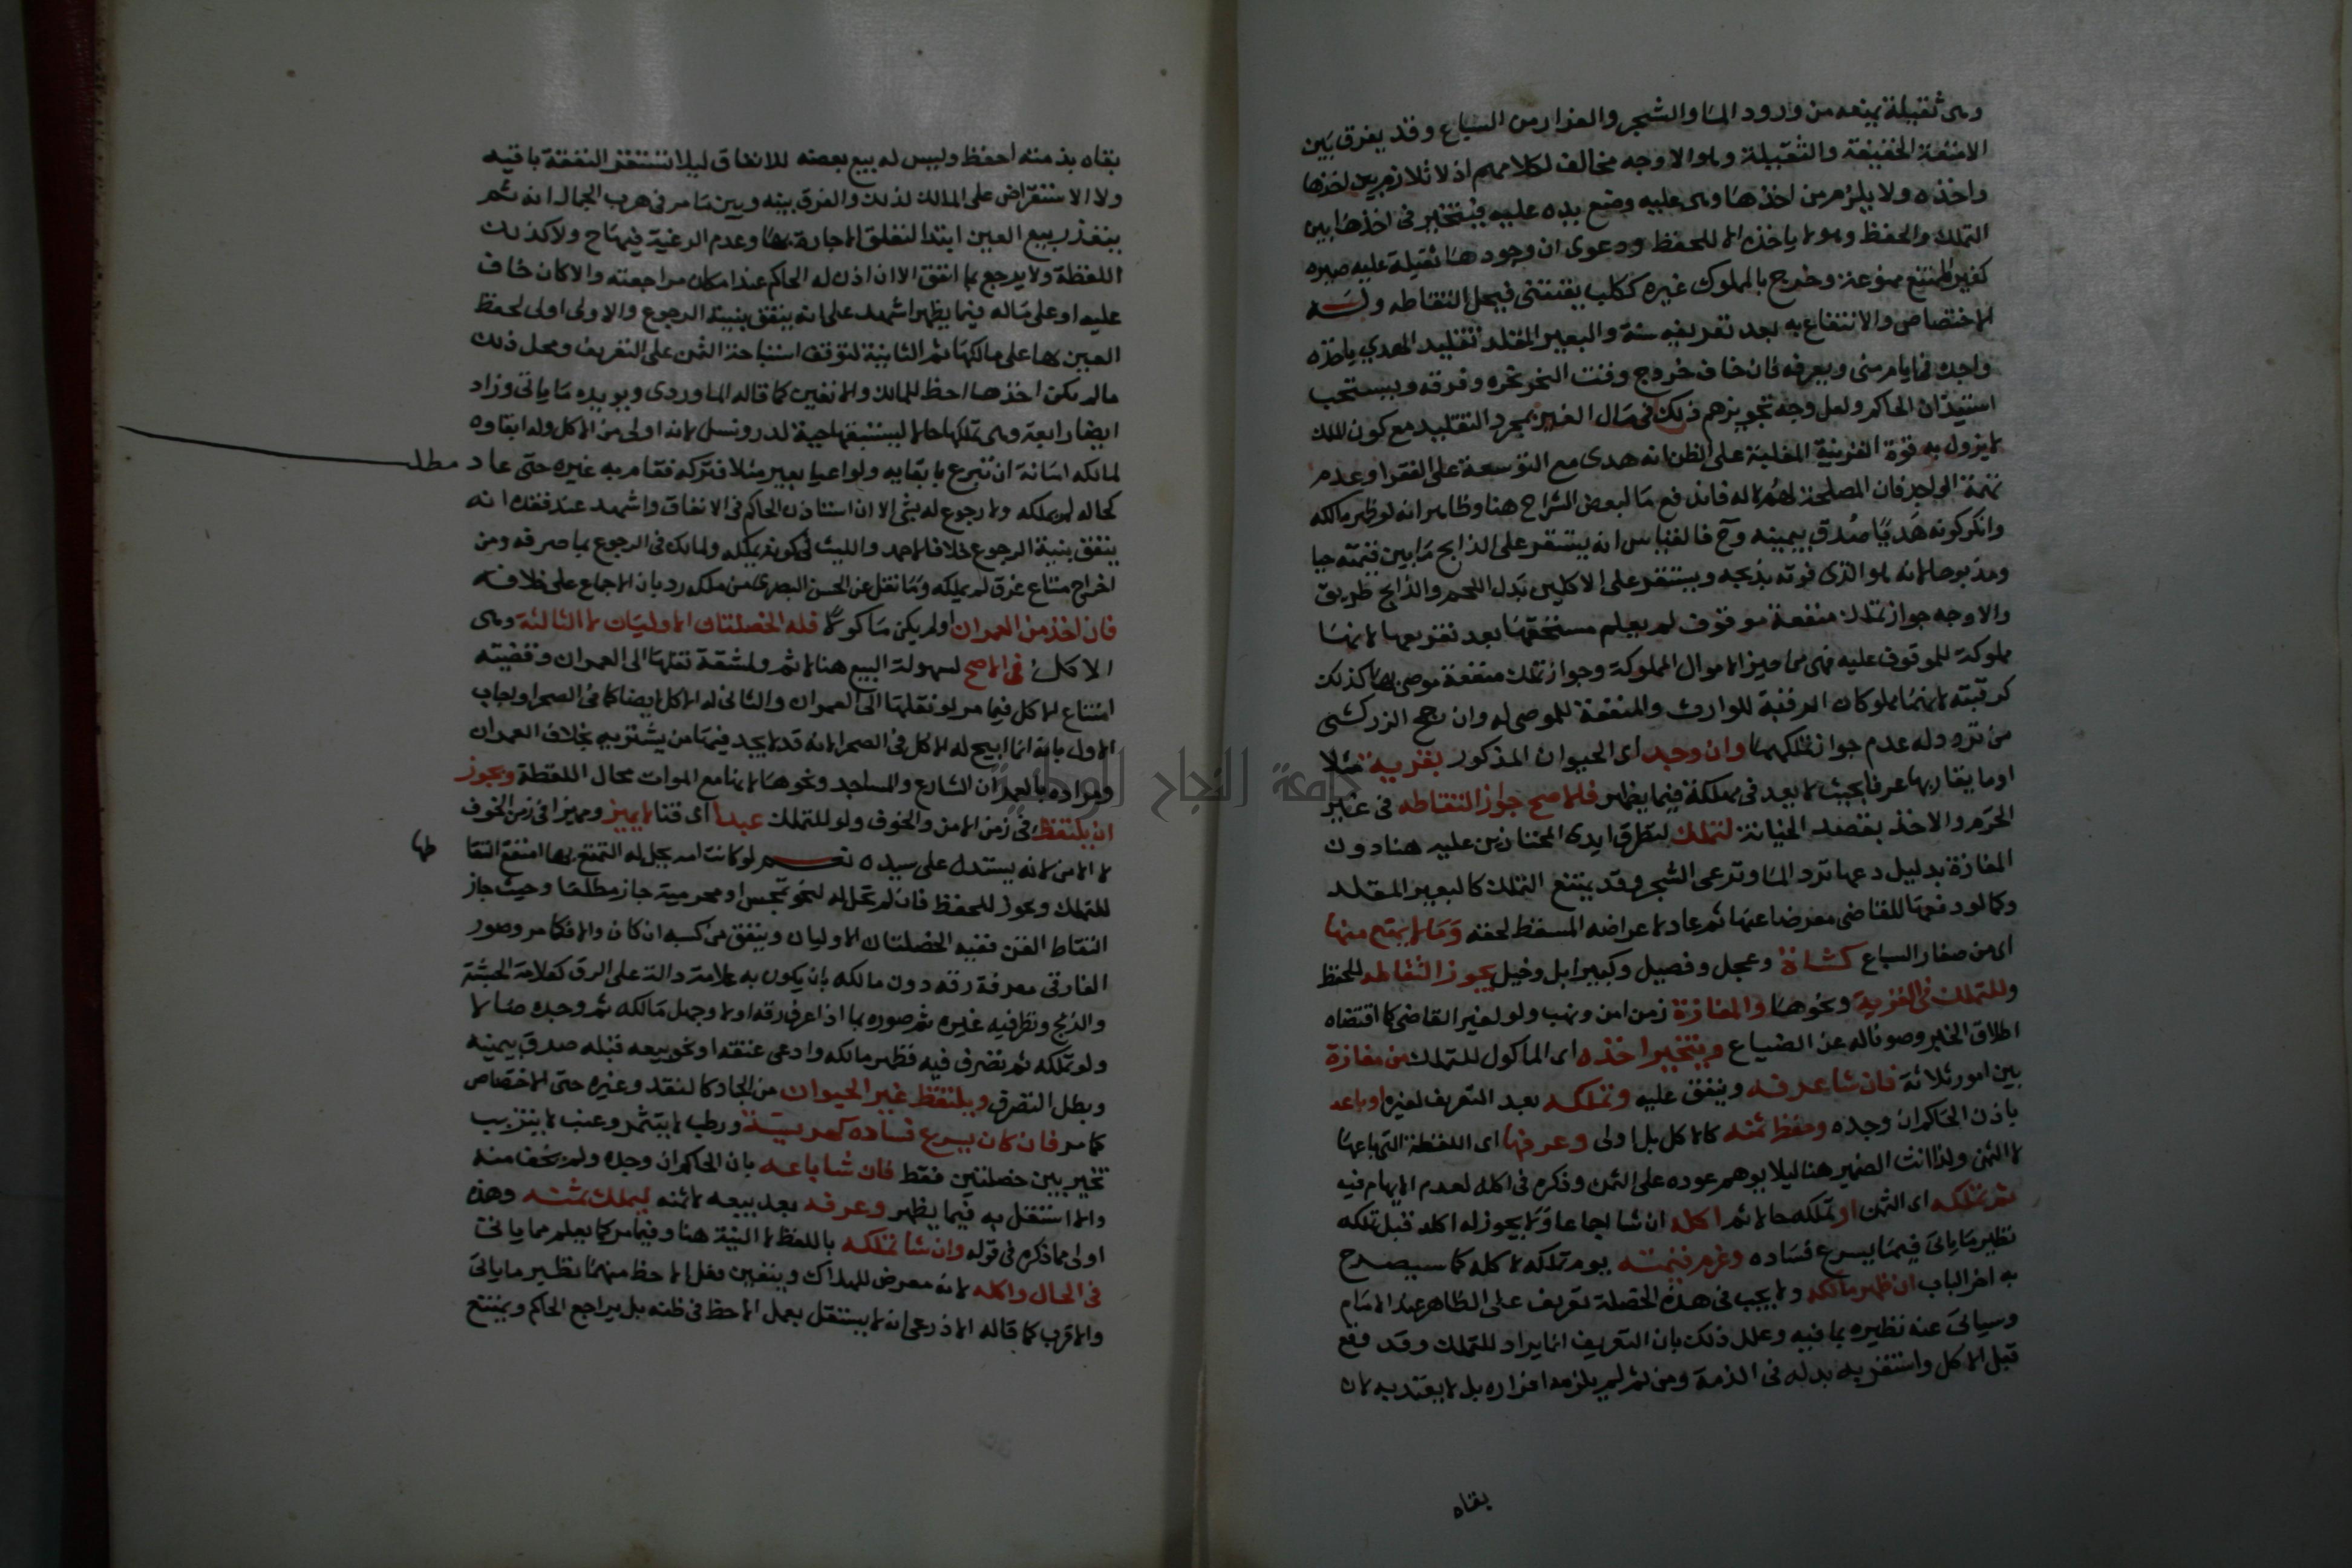 وهى ثقيلة يمنعه من ورود الما والشجر والفرار من السباع وقد يفرق بين
الامتعة الخفيفة والثقيلة وهو الاوجه مخالف لكلامهم اذ لا تلازم بين اخذها
واخذه ولا يلزم من اخذها وهى عليه وضع يده عليه فيتخير فى اخذها بين
التملك والحفظ وهو لا ياخذه الا للحفظ ودعوى ان وجودها ثقيلة عليه صيره
كغير الممتنع ممنوعة وخرج بالمملوك غيره ككلب يقتنى فيحل التقاطه وله
الاختصاص والانتفاع به بعد تعريفه سنة والبعير المقلد تقليد الهدي ياخذه
واجده فى ايام منى ويعرفه فان خاف خروج وقت النحر نحره وفرقه ويستحب
استيذان الحاكم ولعل وجه تجويزهم ذلك فى مال الغير بمجرد التقليد مع كون الملك
لا يزول به قوة القرينة المغلبة على الظن انه هدى مع التوسعة على الفقرا وعدم
تهمة الواجد فان المصلحة لهم لا له فاندفع ما لبعض الشراح هنا وظاهر انه لو ظهر مالكه
وانكر كونه هديا صدق بيمينه وح فالقياس انه يستقر على الذابح ما بين قيمته حيا
ومذبوحا لانه هو الذى فوته بذبحه ويستقر على الاكلين بدل اللحم والذابح طريق
والاوجه جواز تملك منفعة موقوف لم يعلم مستحقها بعد تعريفها لانها
مملوكة للموقوف عليه فهى من حيز الاموال المملوكة وجواز تملك منفعة موصى بها كذلك
كرقبته لانهما مملوكان الرقبة للوارث والمنفعة للموصى له وان رجح الزركشى
من تردد له عدم جواز تملكهما وان وجد اى الحيوان المذكور بقرية مثلا
او ما يقاربها عرفا بحيث لا يعد فى مهلكة فيما يظهر فالاصح جواز التقاطه فى غير
الحرم والاخذ بقصد الخيانة لتملك لتطرق ايدى المجتازين عليه هنا دون
المفازة بدليل دعها ترد الما وترعى الشجر وقد يمتنع التملك كالبعير المقلد
وكما لو دفعها للقاضى معرضا عنها ثم عاد لاعراضه المسقط لحقه وما لا يمتنع منها
اى من صغار السباع كشاة وعجل وفصيل وكبير ابل وخيل يجوز التقاطه للحفظ
وللتملك فى القرية ونحوها والمفازة زمن امن ونهب ولو لغير القاضى كما اقتضاه
اطلاق الخبر وصونا له عن الضياع ويتخير اخذه اى الماكول للتملك من مفازة
بين امور ثلاثة فان شا عرفه وينفق عليه وتملكه بعد التعريف لغيره او باعه
باذن الحاكم ان وجده وحفظ ثمنه كالاكل بل اولى وعرفها اى اللقطة التى باعها
لا الثمن ولذا انث الضمير هنا ليلا يوهم عوده على الثمن وذكره فى اكله لعدم الايهام فيه
ثم تملكه اى الثمن او تملكه حالا ثم اكله ان شا اجماعا ولا يجوز له اكله قبل تملكه
نظير ما ياتى فيما يسرع فساده وغرم قيمته يوم تملكه لا اكله كما سيصرح
به اخر الباب ان ظهر مالكه ولا يجب فى هذه الخصلة تعريف على الظاهر عند الامام
وسياتى عنه نظيره بما فيه وعلل ذلك بان التعريف انما يراد للتملك وقد وقع
قبل الاكل واستقر به بدله فى الذمة ومن ثم لم يلزمه افرازه بل لا يعتد به لان
بقاه
بقاه بذمته احفظ وليس له بيع بعضه للانفاق ليلا تستغرق النفقة باقيه
ولا الاستقراض على المالك لذلك والفرق بينه وبين ما مر فى هرب الجمال انه ثم
يتعذر بيع العين ابتدا لتعلق الاجارة بها وعدم الرغبة فيها ح ولا كذلك
اللقطة ولا يرجع بما انفق الا ان اذن له الحاكم عند امكان مراجعته والا كان خاف
عليه او على ماله فيما يظهر اشهد على انه ينفق بنية الرجوع والاولى اولى لحفظ
العين بها على مالكها ثم الثانية لتوقف استباحة الثمن على التعريف ومحل ذلك
ما لم يكن اخذها احظ للمالك والا تعين كما قاله الماوردى ويويده ما ياتى وزاد
ايضا رابعة وهى تملكها حالا ليستبقيها حية لدر ونسل لانه اولى من الاكل وله ابقاوه
لمالكه امانة ان تبرع بابقايه ولو اعيا بعير مثلا فتركه فقام به غيره حتى عاد
مطلب
كحاله لم يملكه ولا رجوع له بشى الا ان استاذن الحاكم فى الانفاق واشهد عند فقده انه
ينفق بنية الرجوع خلافا لاحمد والليث فى كونه يملكه ولمالك فى الرجوع بما صرفه ومن
اخرج متاع غرق لم يملكه وما نقل عن الحسن البصرى من ملكه رد بان الاجماع على خلافه
فان اخذ من العمران او لم يكن ماكولا فله الخصلتان الاوليان لا الثالثة وهى
الاكل فى الاصح لسهولة البيع هنا لا ثم ولمشقة نقلها الى العمران وقضيته
امتناع الاكل فيما مر لو نقلها الى العمران والثانى له الاكل ايضا كما فى الصحرا واجاب
الاول بانه انما ابيح له الاكل فى الصحرا لانه قد لا يجد فيها من يشتريه بخلاف العمران
ومراده بالعمران الشارع والمساجد ونحوها لانها مع الموات محال اللقطة ويجوز
ان يلتقط فى زمن الامن والخوف ولو للتملك عبدا اى قنا لا يميز ومميزا فى زمن الخوف
لا الامن لانه يستدل على سيده نعم لو كانت امة يحل له التمتع بها امتنع التقا
طها
للتملك ويجوز للحفظ فان لم تحل له لنحو تمجس او محرمية جاز مطلقا وحيث جاز
التقاط القن ففيه الخصلتان الاوليان وينفق من كسبه ان كان والا فكما مر وصور
الفارقى معرفة رقه دون مالكه بان يكون به علامة دالة على الرق كعلامة الحبشة
والزنج ونظر فيه غيره ثم صوره بما اذا عرف رقه اولا وجهل مالكه ثم وجده ضالا
ولو تملكه ثم تصرف فيه فظهر مالكه وادعى عتقه او نحو بيعه قبله صدق بيمينه
وبطل التصرف ويلتقط غير الحيوان من الجماد كالنقد وغيره حتى الاختصاص
كما مر فان كان يسرع فساده كهريسة ورطب لا يتتمر وعنب لا يتزبب
تخير بين خصلتين فقط فان شا باعه باذن الحاكم ان وجده ولم يخف منه
والا استقل به فيما يظهر وعرفه بعد بيعه لا ثمنه ليملك ثمنه وهذه
اولى مما ذكره فى قوله وان شا تملكه باللفظ لا النية هنا وفيما مر كما يعلم مما ياتى
فى الحال واكله لانه معرض للهلاك ويتعين فعل الاحظ منهما نظير ما ياتى
والاقرب كما قاله الاذرعى انه لا يستقل بعمل الاحظ فى ظنه بل يراجع الحاكم ويمتنع
جامعة النجاح الوطنية